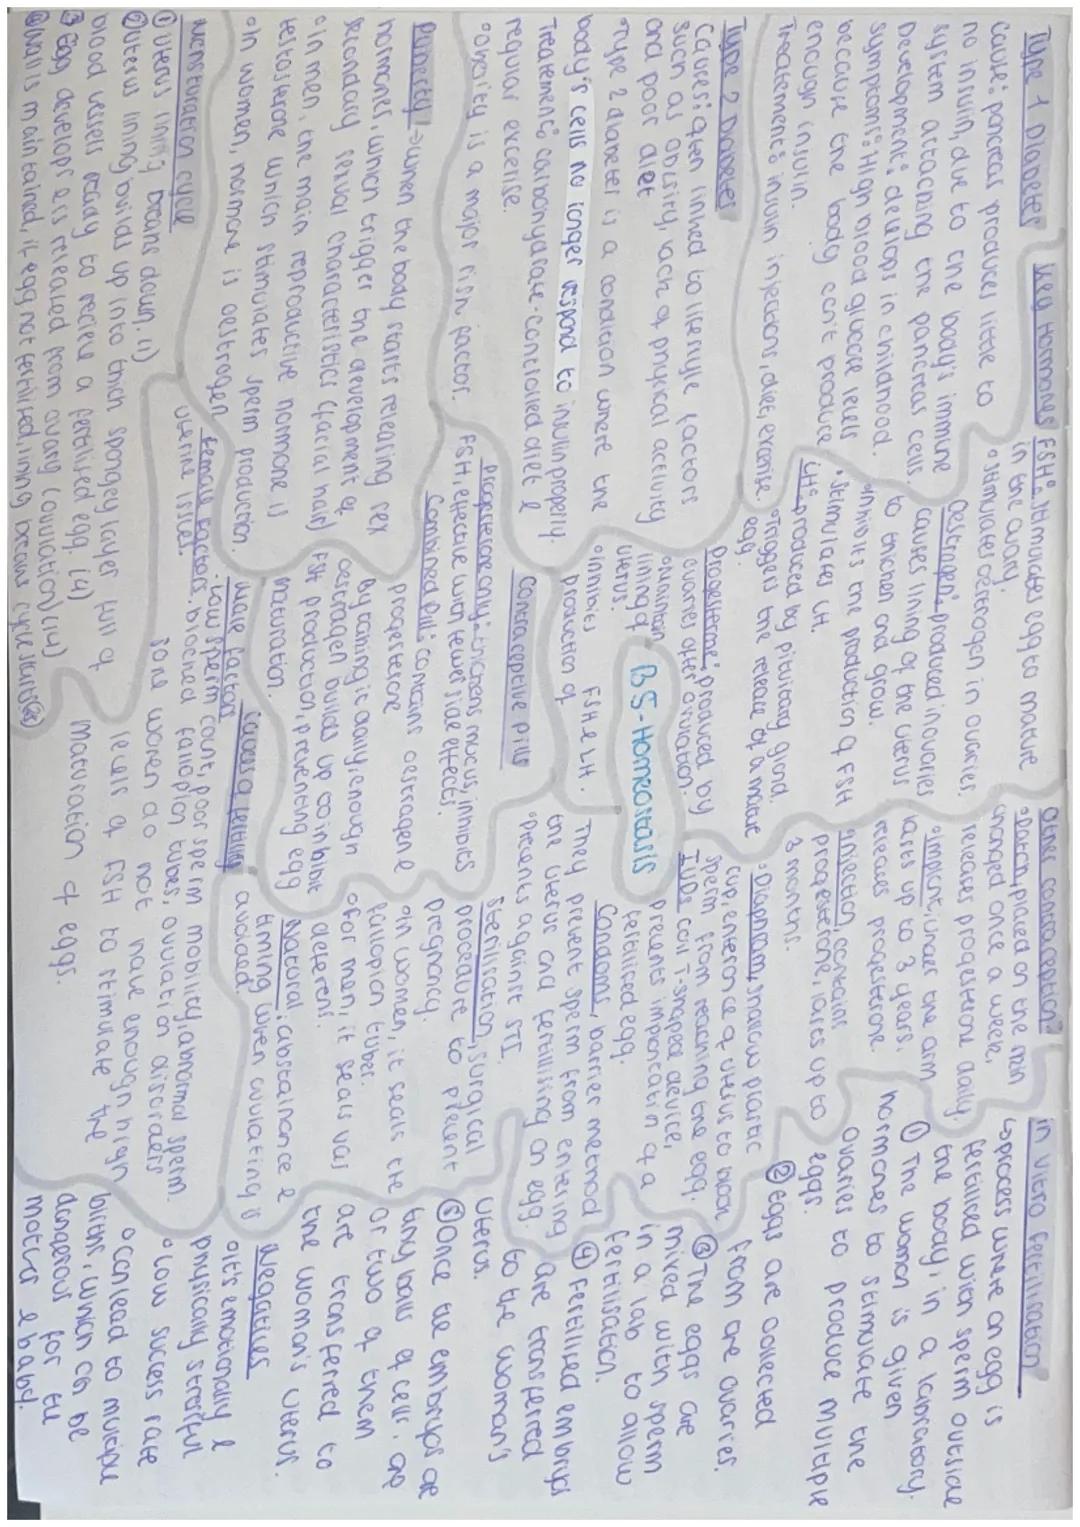 Type 1 Diabetes
cause: pancreas produces little to
no insulin, due to the body's immune
system attacking the pancreas cells
Development: develops in childhood.
symptoms: High blood glucose levels
because the body can't produce
enough insulin.
Treatement: insulin injections, diet, exercise.
Type 2 Diabetes
causes: often linked to lifestyle factors
such as obesity, lack of physical activity
and poor diet
Type 2 diabetes is a condition where the
body's cells no longer respond to insulin properly.
Treatement: carbohydrate-controlled diet &
regular excerise.
obesity is a major risk factor.
Puberty → when the body starts releasing sex
hormones, which trigger the development of
secondary sexual characteristics (facial hair)
in men, the main reproductive hormone is
testosterone which stimulates sperm production.
in women, hormone is oestrogen
menstruation cycle
① uterus lining breaks down. (1)
② uterus lining builds up into thick spongey layer full of
blood vessels ready to recieve a fertilised egg. (4)
③ Egg develops & is released from ovary (ovulation) (14)
④ Wall is maintained, if egg not fertilised, lining breaks cycle starts (28)
Key Hormones
FSH: stimulates egg to mature
in the ovary.
stimulates oestrogen in ovaries.
oestrogen: produced in ovaries
causes lining of the uterus
to thicken and grow.
inhibits the production of FSH
stimulates LH.
LH: produced by pituitary gland.
Triggers the release of a mature
egg.
Progesterone: produced by
ovaries after ovulation.
maintain
lining of
uterus.
inhibits FSH & LH.
production of
B5-Homeostasis
Contraceptive pills
progesterone only: thickens mucus, inhibits
FSH, effective with fewer side effects.
Combined pill: contains oestrogen &
progesterone
By taking it daily, enough
oestrogen builds up to inhibit
FSH production, preventing egg
maturation.
causes of fertility
male factors
low sperm count, poor sperm mobility, abnormal sperm.
female factors: blocked fallopian tubes, ovulation disorders
uterine issues.
some women do not have enough high
levels of FSH to stimulate the
maturation of eggs.
Other contraception:
patch, placed on the skin
changed once a week,
releases progesterone daily.
implant: under the arm
lasts up to 3 years.
releases progesterone.
injection, contains
progesterone, lasts up to
3 months.
Diaphram, shallow plastic
cup, entrance of uterus to block
sperm from reaching the egg.
IUD: coil T-shaped device,
prevents implantation of a
fertilised egg.
Condoms, barrier method
They prevent sperm from entering
the uterus and fertilising an egg
Prevents against STI.
Sterilisation, surgical
procedure to prevent
pregnancy.
in women, it seals the
fallopian tubes.
for men, it seals vas
deferens.
Natural: abstainance &
timing when ovulating is
avoided
in vitro fertilisation
↳ process where an egg is
fertilised with sperm outside
the body, in a labratory.
① The woman is given
hormones to stimulate the
ovaries to produce multiple
eggs.
② eggs are collected
from are ovarries.
③ The eggs are
mixed with sperm
in a lab to allow
fertilisation.
④ Fertilised embryos
are transfered
to the woman's
uterus.
⑤ Once the embryos are
tiny balls of cells, are
or two of them
are transferred to
the woman's uterus.
Negatives
it's emotionally &
physically stressful
low success rate
can lead to multiple
births, which can be
dangerous for the
mother & baby.